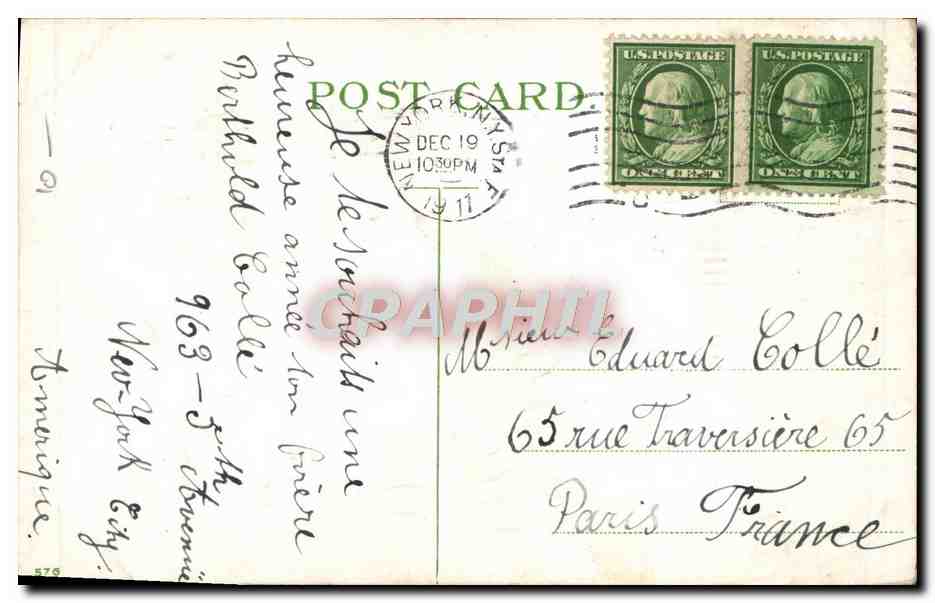 POST CARD
U.S. POSTAGE
ONE CENT
U.S. POSTAGE
ONE CENT
NEW YORK, N.Y. STA F
DEC 19
1030 PM
1911
Je te souhaits une
heureuse année ton frère
Berthold Collé
963-5th Avenüe
New-York City.
Amerique.
Msieur Eduard Collé
65 rue Traversière 65
Paris France
CPAPHIL
576